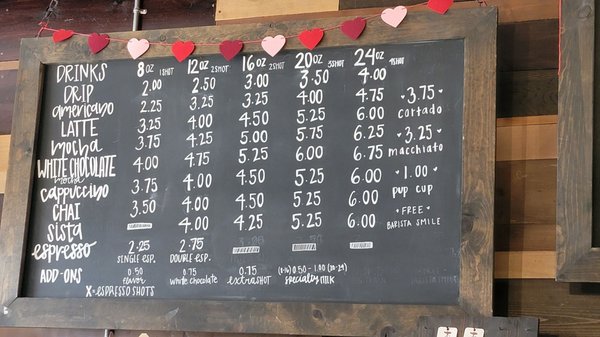 DRINKS 8oz 1SHOT 12oz 2SHOT 16oz 2SHOT 20oz 3SHOT 24oz 4SHOT
DRIP 2.00 2.50 3.00 3.50 4.00
americano 2.25 3.25 3.25 4.00 4.75
LATTE 3.25 4.00 4.50 5.25 6.00
mocha 3.75 4.25 5.00 5.75 6.25
WHITE CHOCOLATE mocha 4.00 4.75 5.25 6.00 6.75
cappuccino 3.75 4.00 4.50 5.25 6.00
CHAI 3.50 4.00 4.50 5.25 6.00
Sista 4.00 4.25 5.25 6.00
espresso 2.25 2.75
SINGLE ESP. DOUBLE ESP.
ADD-ONS 0.50 0.75 0.75 (8-16) 0.50 - 1.00 (20-24)
flavor white chocolate extra shot specialty milk
X = ESPRESSO SHOTS
3.75
cortado
3.25
macchiato
1.00
pup cup
FREE
BARISTA SMILE